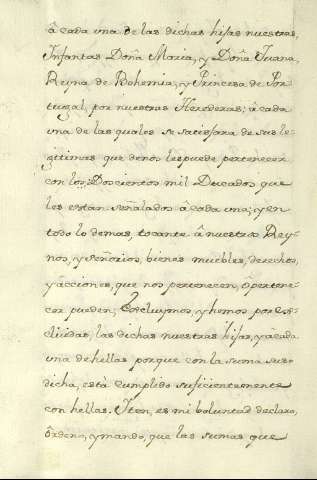 â cada una de las dichas hijas nuestras,
Infantas Doña Maria, y Doña Juana,
Reyna de Bohemia, y Princesa de Por
tugal, por nuestras Herederas; â cada
una de las quales se satisfara de sus le
gitimas que de nos les puede pertenecer
con los Doscientos mil Ducados que
les estan señalados â cada una; y en
todo lo demas, tocante â nuestros Rey
nos, y señorios, bienes muebles, derechos,
y acciones, que nos pertenecen, ô perten
cer pueden; Excluymos, y hemos por Ex
cluidas, las dichas nuestras hijas, y a cada
una de hellas porque con la suma suso
dicha, está cumplido suficientemente
con hellas. Iten, es mi boluntad declaro,
ôrdeno, y mando, que las sumas que